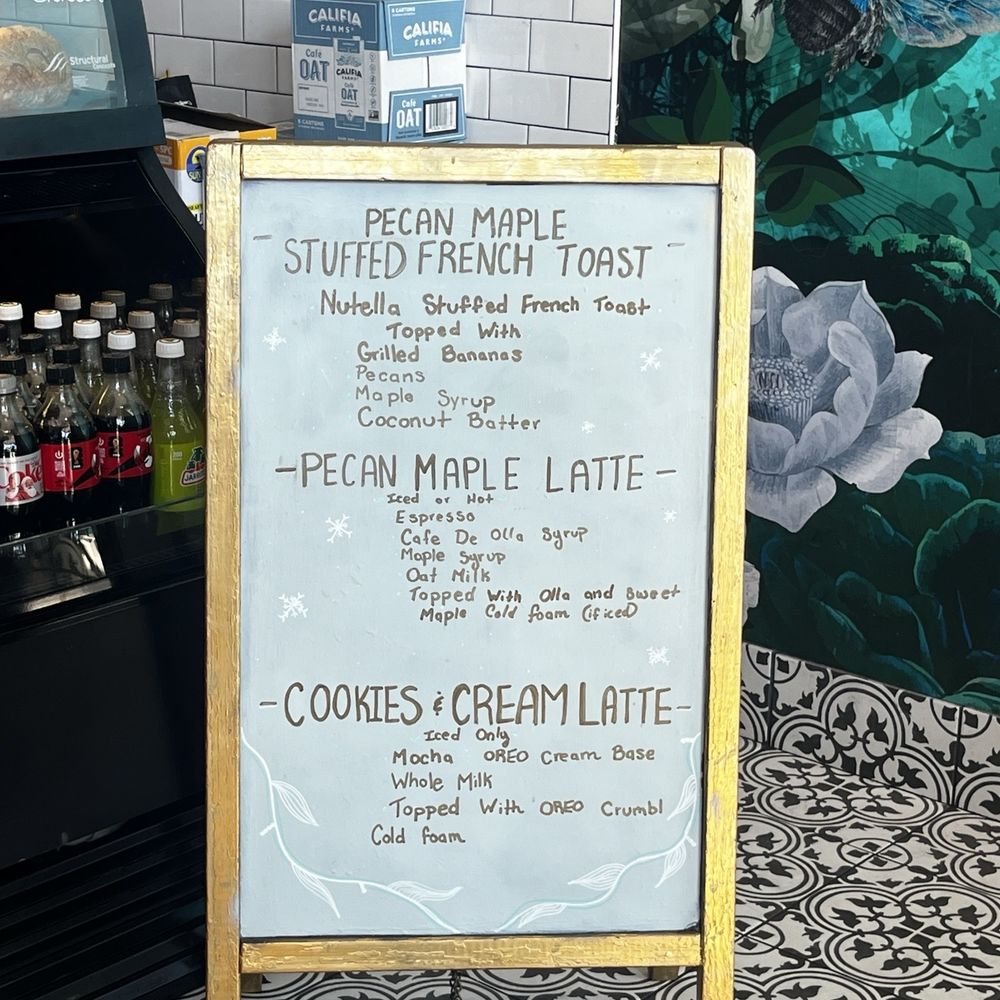 Structural
CALIFIA
FARMS
CALIFIA
FARMS
Café
OAT
CALIFIA
FARMS
Café
OAT
Café
OAT
PECAN MAPLE
- STUFFED FRENCH TOAST -
Nutella Stuffed French Toast
Topped With
Grilled Bananas
Pecans
Maple Syrup
Coconut Batter
- PECAN MAPLE LATTE -
Iced or Hot
Espresso
Cafe De Olla Syrup
Maple Syrup
Oat Milk
Topped With Olla and Sweet
Maple Cold foam (if iced)
- COOKIES & CREAM LATTE -
Iced Only
Mocha OREO Cream Base
Whole Milk
Topped With OREO Crumbl
Cold foam